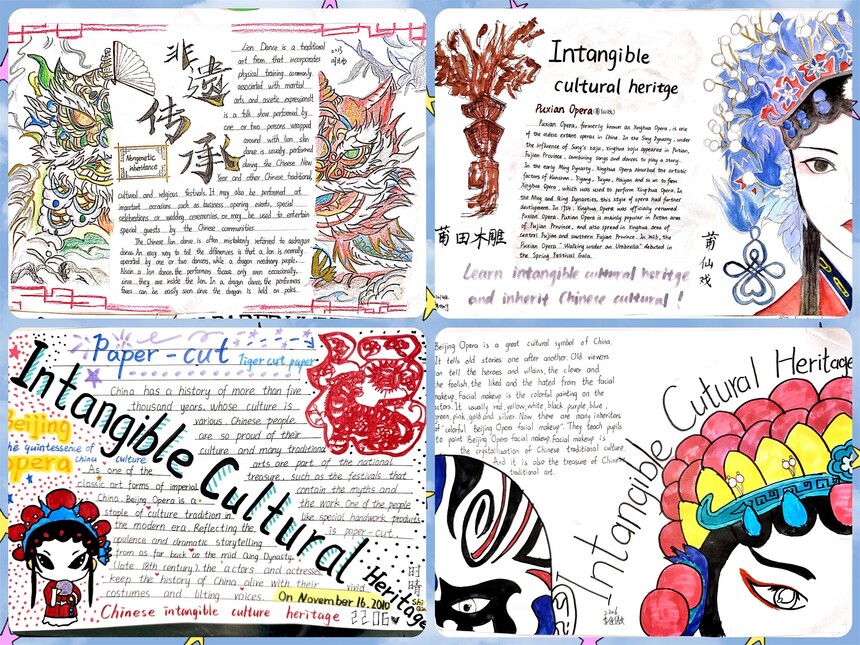 非遗传承
Nongenetic
inheritance
Lion Dance is a traditional
art from that incorporates
physical training commonly
associated with martial
arts and ascetic
is a folk show performed by
one or two persons wrapped
around with lion skin
dance is usually performed
during the Chinese New
Year and other Chinese traditional
cultural and religious festivals. It may also be performed at
important occasions such as business opening events, special
celebrations or wedding ceremonies or may be used to entertain
special guests by the Chinese communities.
The Chinese lion dance is often mistakenly referred to as dragon
dance. An easy way to tell the differences is that a lion is normally
operated by one or two dancers, while a dragon needs many people.
the performers' faces only seen occasionally,
since they are inside the lion. In a dragon dance the performers'
faces can be easily seen since the dragon is held on poles.
Intangible
cultural heritge
Puxian Opera
Puxian Opera, formerly known as Xinghua Opera, is one
of the oldest extent operas in China. In the Song Dynasty, under
the influence of Song's zaju, Xinghua zaju appeared in Putian,
Fujian Province, combining songs and dances to play a story.
In the early Ming Dynasty, Xinghua Opera absorbed the artistic
factors of Kunshan, Yiyang, Yuyao, Haiyan and so on to form
Xinghua Opera, which was used to perform Xinghua Opera. In
the Ming and Qing Dynasties, this style of opera had further
development. In 1954, Xinghua Opera was officially renamed
Puxian Opera. Puxian Opera is mainly popular in Putian area
of Fujian Province, and also spread in Xinghua area of
central Fujian and southern Fujian Province. In 2023, the
Puxian Opera "Walking under an Umbrella" debuted in
the Spring Festival Gala.
莆田木雕
莆仙戏
Learn intangible cultural heritage
and inherit Chinese cultural !
Paper-cut
Tiger cut paper
Intangible Cultural Heritage
China has a history of more than five
thousand years, whose culture is
various. Chinese people
are so proud of their
culture and many traditional
arts are part of the national
treasure, such as the festivals that
contain the myths and
the work. One of the people
like special handwork products
is paper-cut.
Beijing
the quintessence of
china culture
opera
As one of the
classic art forms of imperial
China, Beijing Opera is a
staple of culture tradition in
the modern era. Reflecting the
opulence and dramatic storytelling
from as far back as the mid Qing Dynasty
(late 18th century), the actors and actresses
keep the history of China alive with their vivid
costumes and lilting voices.
On November 16. 2010
Chinese intangible culture heritage
2206
时晴
Beijing Opera is a great cultural symbol of China.
It tells old stories one after another. Old viewers
can tell the heroes and villains, the clever and
the foolish, the liked and the hated from the facial
makeup. Facial makeup is the colorful painting on the
actors. It usually red, yellow, white, black, purple, blue,
green, pink, gold and silver. Now there are many inheritors
of "colorful Beijing Opera facial makeup". They teach pupils
to paint Beijing Opera facial makeup. Facial makeup is
the crystallisation of Chinese traditional culture.
And it is also the treasure of Chinese
traditional art.
Intangible Cutural Heritage